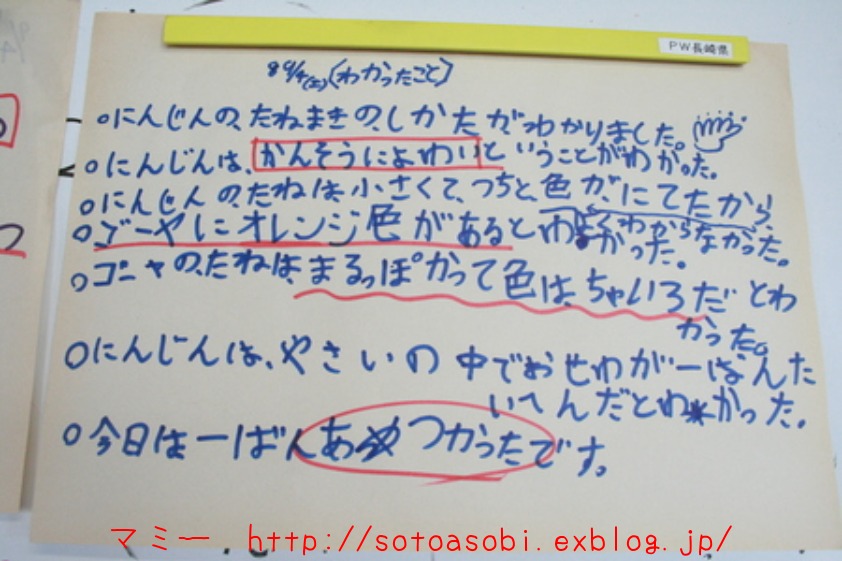 PW長崎県
9/4(土)(わかったこと)
○にんじんの、たねまきの、しかたが、わかりました。
○にんじんは、かんそうによわいということがわかった。
○にんじんの、たねは、小さくて、つちと、色が、にてたから、
よくわからなかった。
○ゴーヤにオレンジ色があるとわ
かった。
○ゴーヤの、たねは、まるっぽかって色は、ちゃいろだとわ
かった。
○にんじんは、やさいの中でおせわが一ばんた
いへんだとわかった。
○今日は一ばんあつかったです。
マミー http://sotoasobi.exblog.jp/